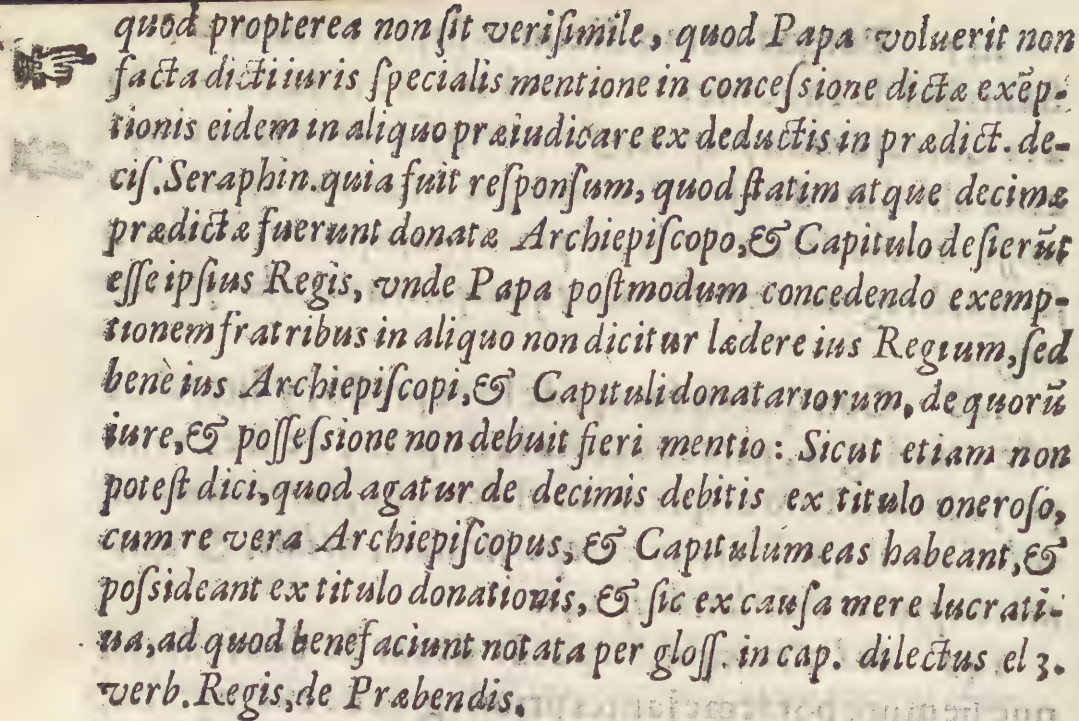 quod propterea non ſit veriſimile, quod Papa voluerit non
facta dicti iuris ſpecialis mentione in conceſsione dictæ exẽp-
tionis eidem in aliquo præiudicare ex deductis in prædict. de-
ciſ. Seraphin. quia fuit reſponſum, quod ſtatim atque decimæ
prædictæ fuerunt donatæ Archiepiſcopo, & Capitulo deſierũt
eſſe ipſius Regis, vnde Papa poſtmodum concedendo exemp-
tionem fratribus in aliquo non dicitur lædere ius Regium, ſed
benè ius Archiepiſcopi, & Capituli donatariorum, de quorũ
iure, & poſſeſsione non debuit fieri mentio: Sicut etiam non
poteſt dici, quod agatur de decimis debitis ex titulo oneroſo,
cum re vera Archiepiſcopus, & Capitulum eas habeant, &
poſsideant ex titulo donationis, & ſic ex cauſa mere lucrati-
ua, ad quod bene faciunt notata per gloſſ. in cap. dilectus el 3.
verb. Regis, de Præbendis.